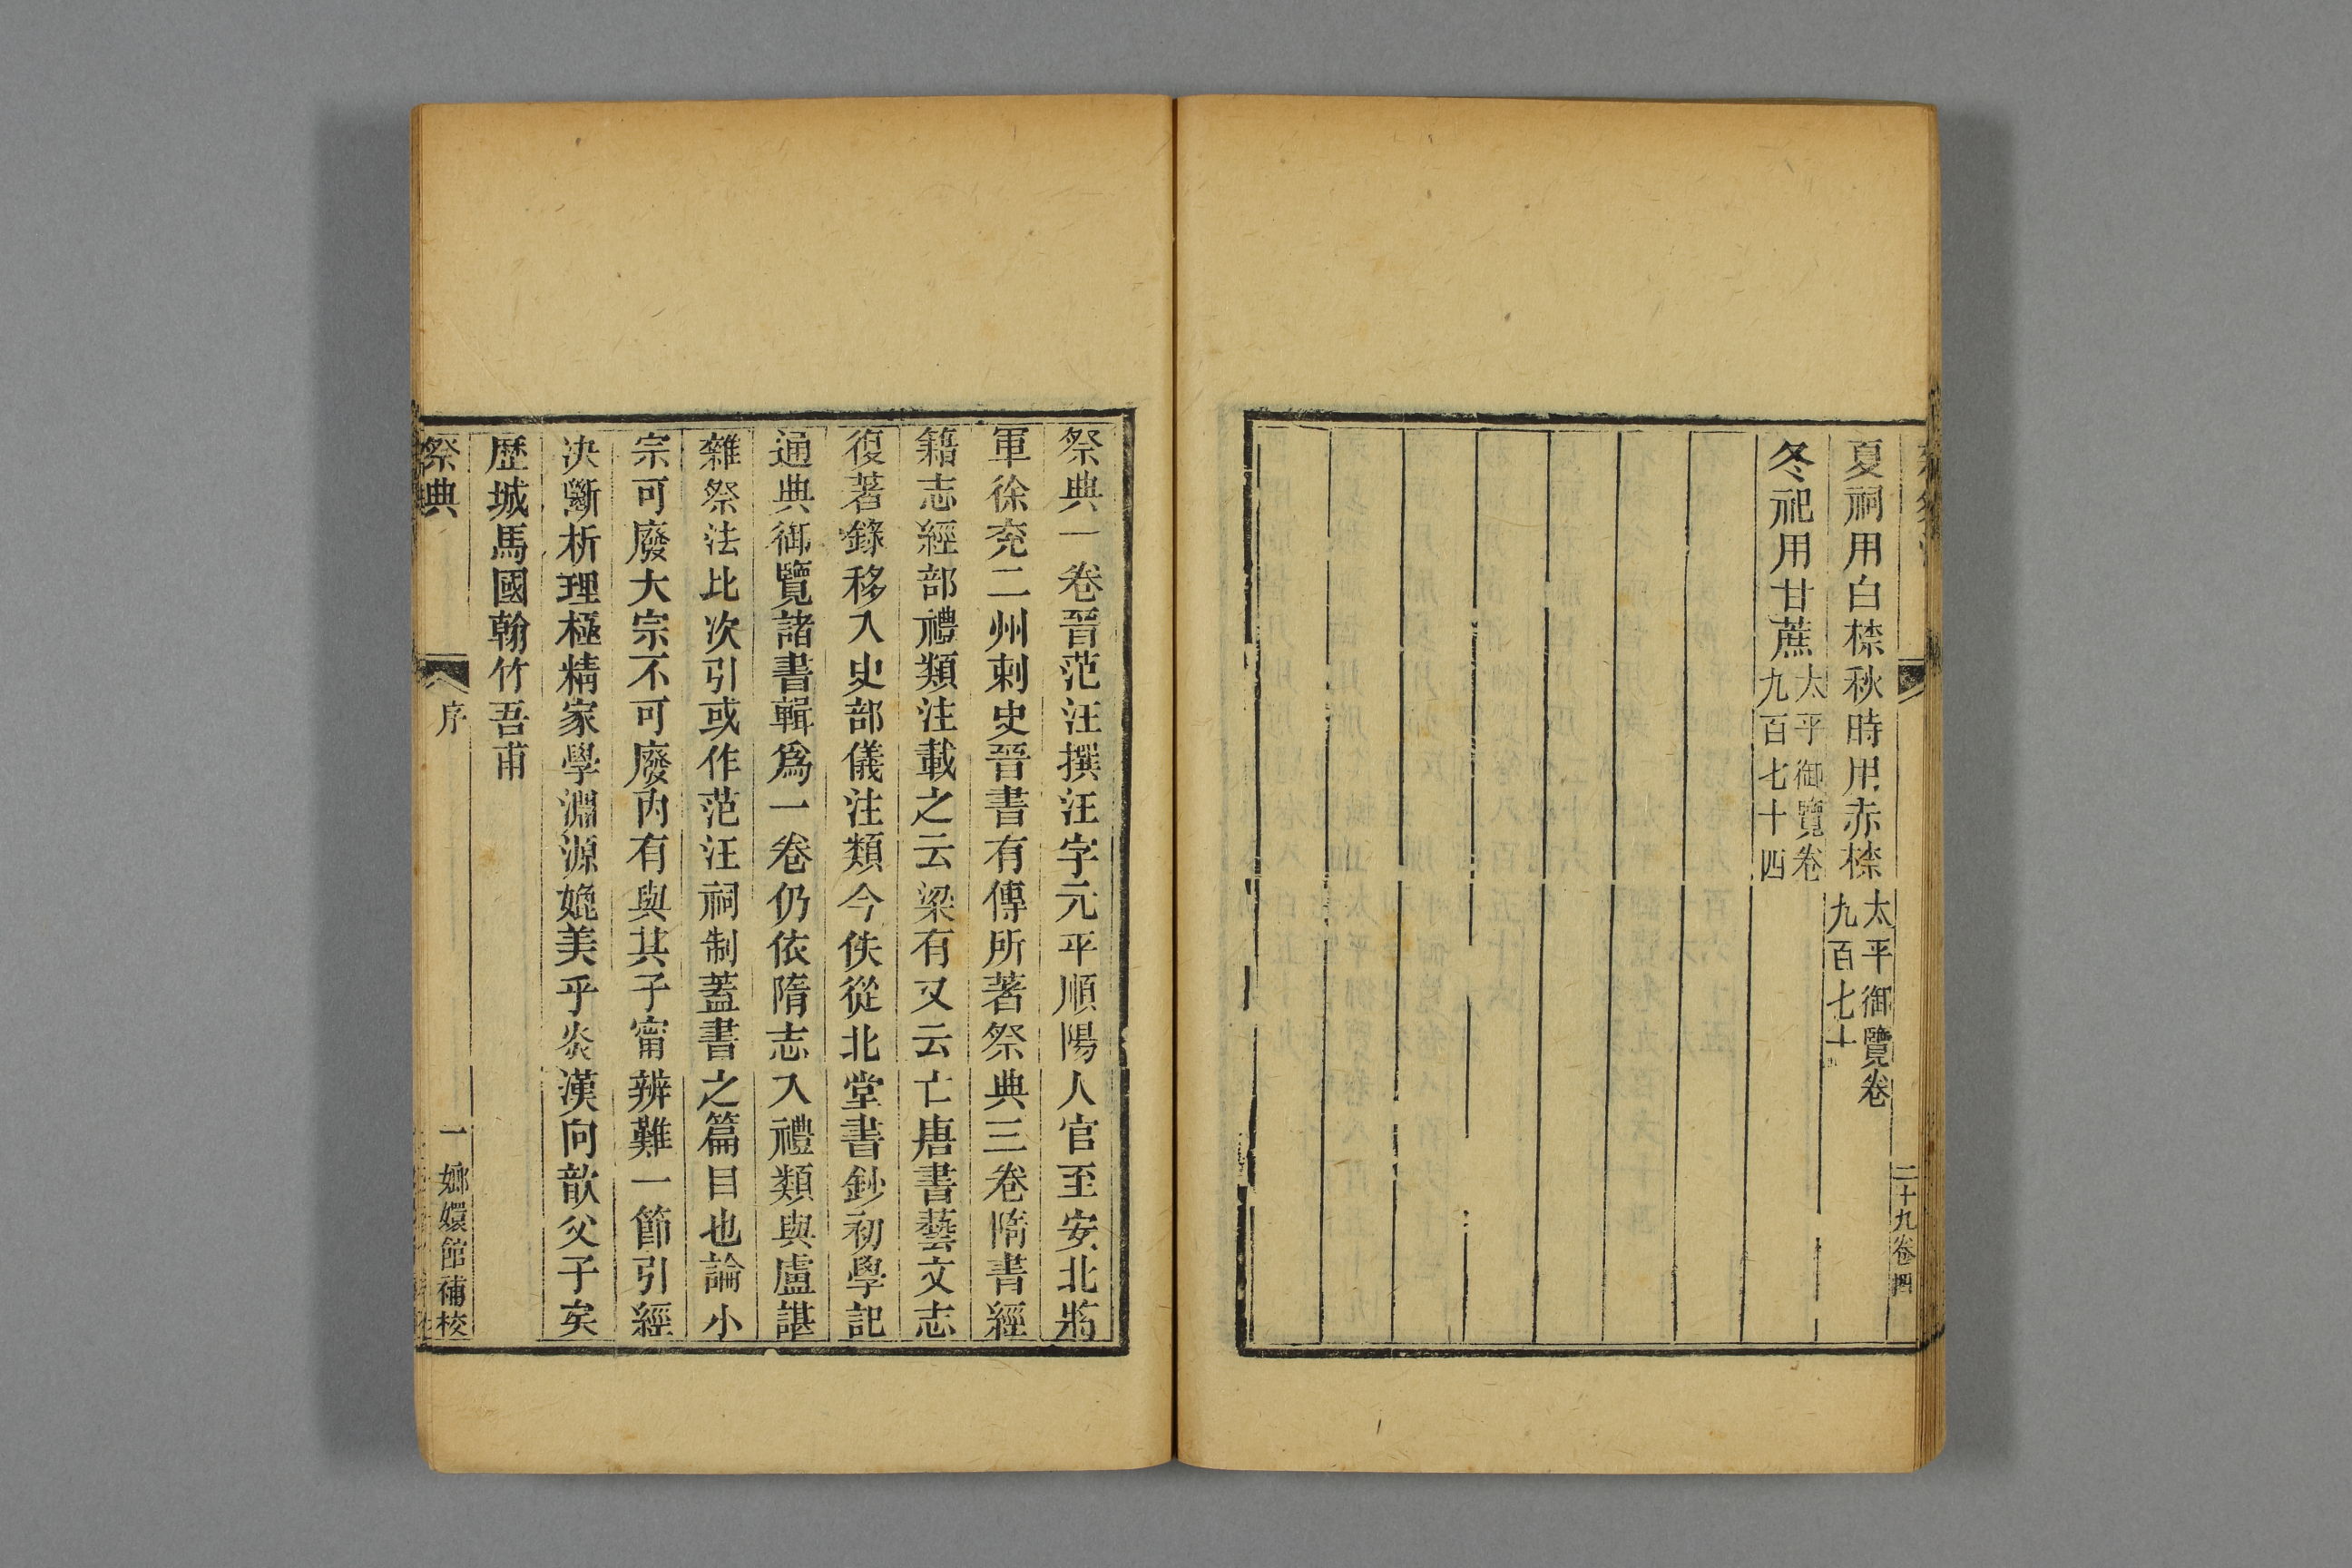 夏祠用白㮈秋時用赤㮈太平御覽卷
九百七十
冬祀用甘蔗太平御覽卷
九百七十四
二十九卷四
祭典一卷晉范汪撰汪字元平順陽人官至安北將
軍徐兖二州刺史晉書有傳所著祭典三卷隋書經
籍志經部禮類注載之云梁有又云亡唐書藝文志
復著錄移入史部儀注類今佚從北堂書鈔初學記
通典御覽諸書輯爲一卷仍依隋志入禮類與盧諶
雜祭法比次引或作范汪祠制蓋書之篇目也論小
宗可廢大宗不可廢內有與其子甯辨難一節引經
決斷析理極精家學淵源媲美乎炎漢向歆父子矣
歷城馬國翰竹吾甫
祭典
序
一
嫏嬛館補校